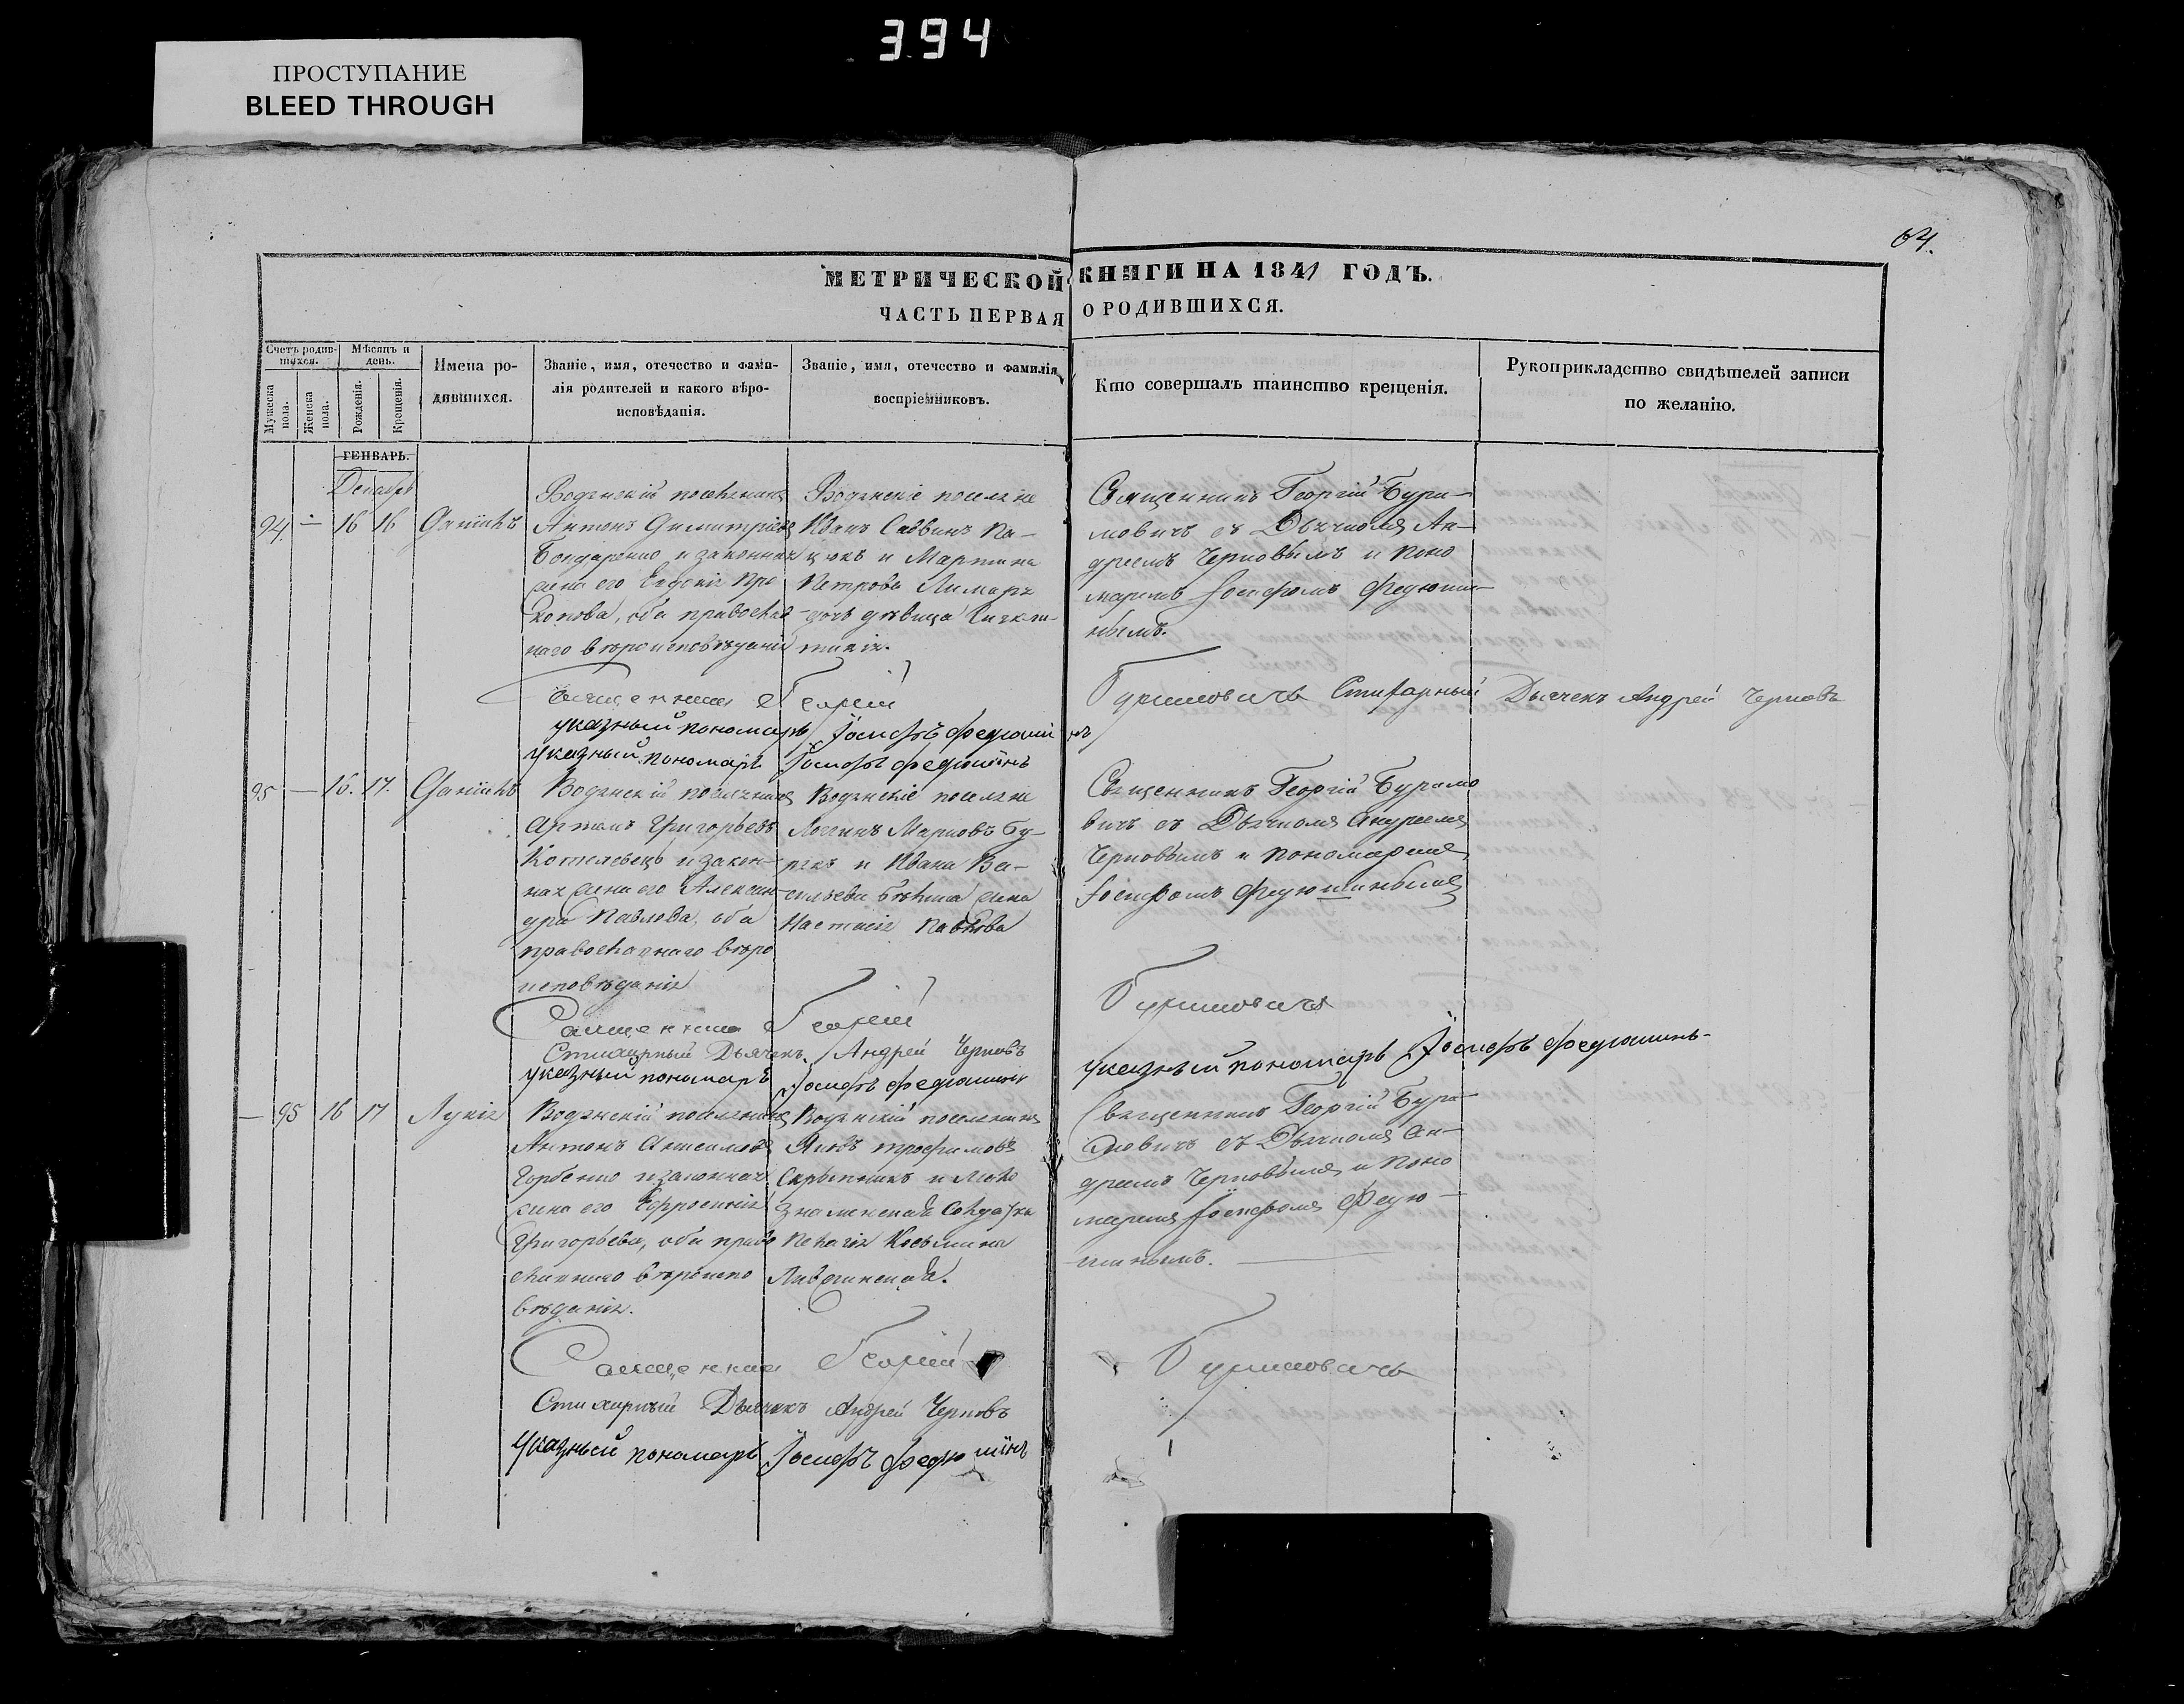 394
ПРОСТУПАНИЕ
BLEED THROUGH
64.
МЕТРИЧЕСКОЙ КНИГИ НА 1841 ГОДЪ.
ЧАСТЬ ПЕРВАЯ О РОДИВШИХСЯ.
Счетъ родив-
шихся.
Мужеска
пола.
Женска
пола.
Мѣсяцъ и
день.
Рожденія.
Крещенія.
Имена ро-
дившихся.
Званіе, имя, отечество и фами-
лія родителей и какого вѣро-
исповѣданія.
Званіе, имя, отечество и фамилія
воспріемниковъ.
Кто совершалъ таинство крещенія.
Рукоприкладство свидѣтелей записи
по желанію.
ГЕНВАРЬ.
Декабрь
94. — 16 16 Даніилъ
Водянскій поселянинъ
Антонъ Димитріевъ
Бондаренко и законная
жена его Евдокія Про
копова, оба православ
наго вѣроисповѣданія
Водянскіе поселяне
Иванъ Саввинъ Па-
цюкъ и Мартина
Петрова Лимаря
дочь дѣвица
Священникъ Георгій Бури-
мовичъ съ Дьячкомъ Ан-
дреемъ Черновымъ и поно
маремъ Іосифомъ Федюши-
нымъ.
Священникъ Георгій Буримовичъ Стихарный Дьячекъ Андрей Черновъ
указный пономарь Іосифъ Федюшинъ
указный пономарь Іосифъ Федюшинъ
95 — 16. 17. Даніилъ
Водянскій поселянинъ
Артемъ Григорьевъ
Котелевецъ и закон-
ная жена его Алексан-
дра Павлова, оба
православнаго вѣро
исповѣданія
Водянскіе поселяне
Логгинъ Марковъ Бу-
рякъ и Ивана Ва-
сильева жена
Настасія Павлова
Священникъ Георгій Буримо
вичъ съ Дьячкомъ Андреемъ
Черновымъ и пономаремъ
Іосифомъ Федюшинымъ
Священникъ Георгій Буримовичъ
Стихарный Дьячекъ Андрей Черновъ
указный пономарь Іосифъ Федюшинъ
указный пономарь Іосифъ Федюшинъ
— 95 16 17 Лукія
Водянскій поселянинъ
Антонъ
Горбенко и законная
жена его Евфросинія
Григорьева, оба право
славнаго вѣроиспо
вѣданія.
Водянскій поселянинъ
Яковъ Трофимовъ
Скрыпникъ и Мало
знаменская Солдатка
Пелагія Козьмина
Священникъ Георгій Бури-
мовичъ съ Дьячкомъ Ан-
дреемъ Черновымъ и поно
маремъ Іосифомъ Федю-
шинымъ.
Священникъ Георгій Буримовичъ
Стихарный Дьячекъ Андрей Черновъ
указный пономарь Іосифъ Федюшинъ